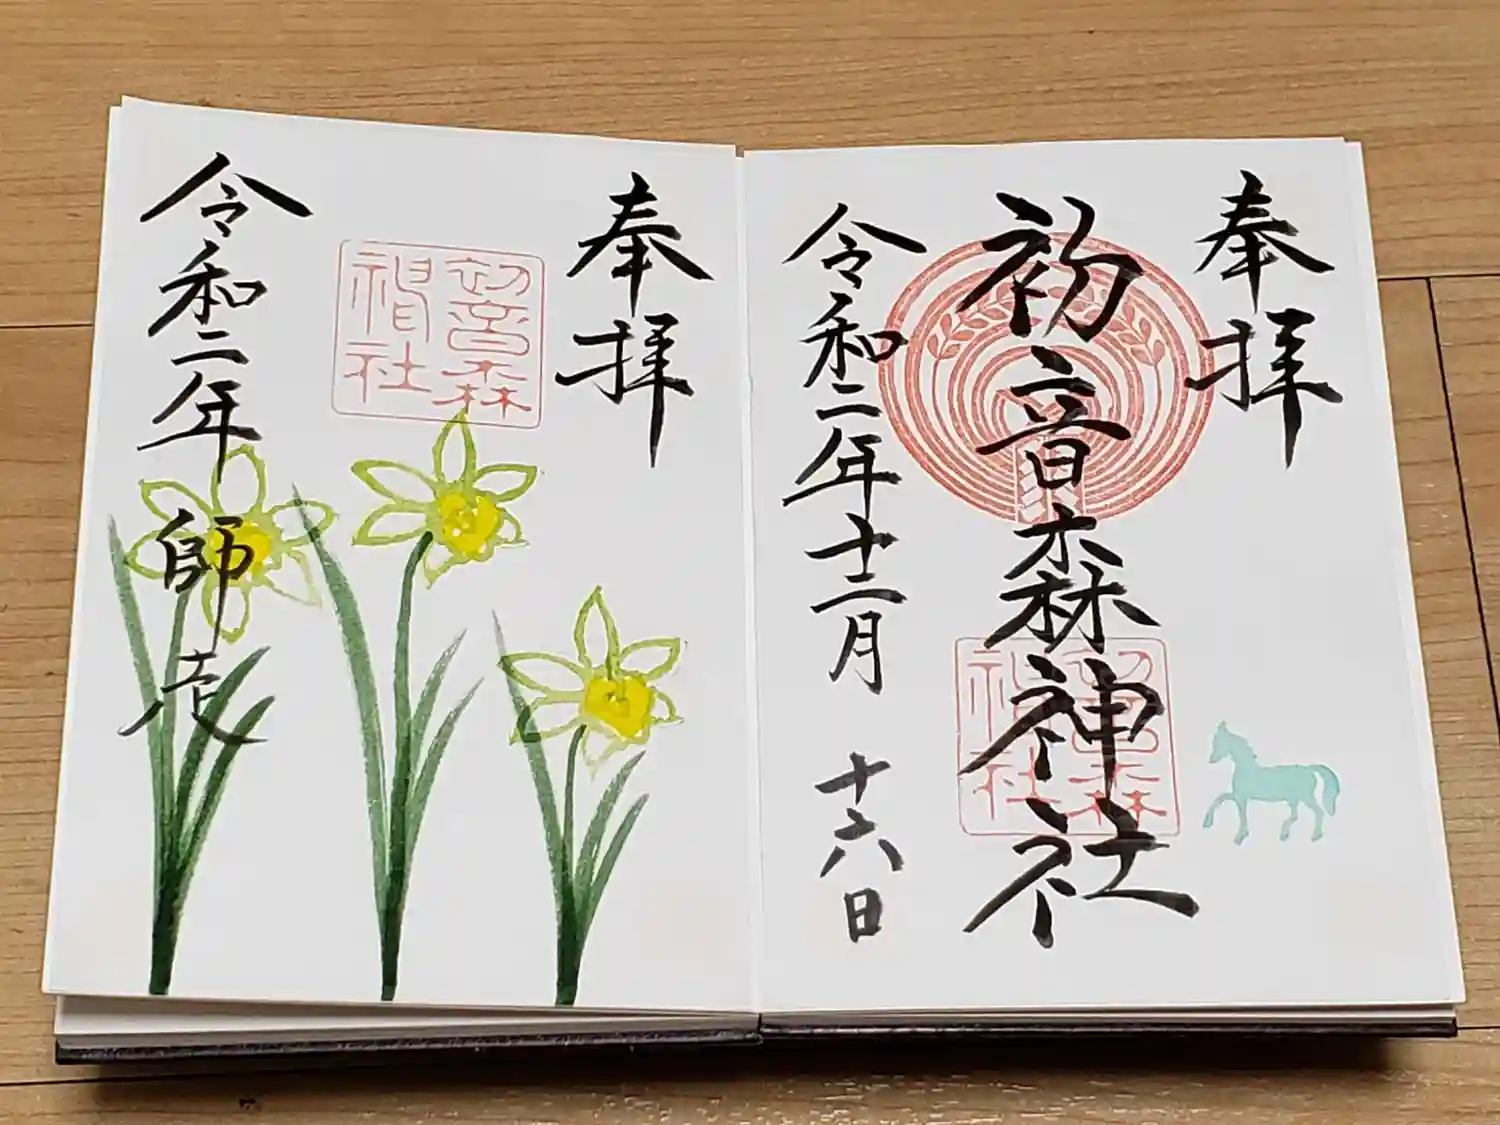 奉拝
初音森神社
令和二年十二月十六日
奉拝
初音森
神社
令和二年師走